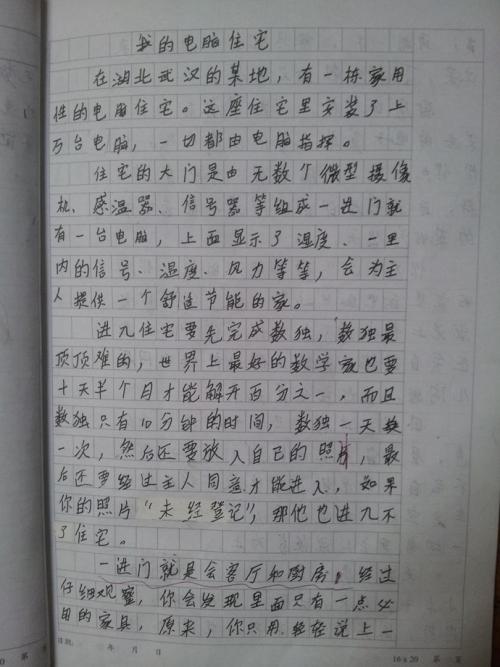 我的电脑住宅
在湖北武汉的某地，有一栋家用
性的电脑住宅。这座住宅里安装了上
万台电脑，一切都由电脑指挥。
住宅的大门是由无数个微型摄像
机、感温器、信号器等组成一进门就
有一台电脑，上面显示了湿度、一里
内的信号、温度、风力等等，会为主
人提供一个舒适节能的家。
进入住宅要先完成数独，数独最
顶顶难的，世界上最好的数学家也要
十天半个月才能解开百分之一，而且
数独只有10分钟的时间，数独一天换
一次，然后还要放入自己的照片，最
后还要经过主人同意才能进入，如果
你的照片“未经登记”，那他也进入不
了住宅。
一进门就是会客厅和厨房，经过
仔细观察，你会发现里面只有一点必
用的家具，原来，你只用轻轻说上一
日期： 年 月 日 16×20 第 页